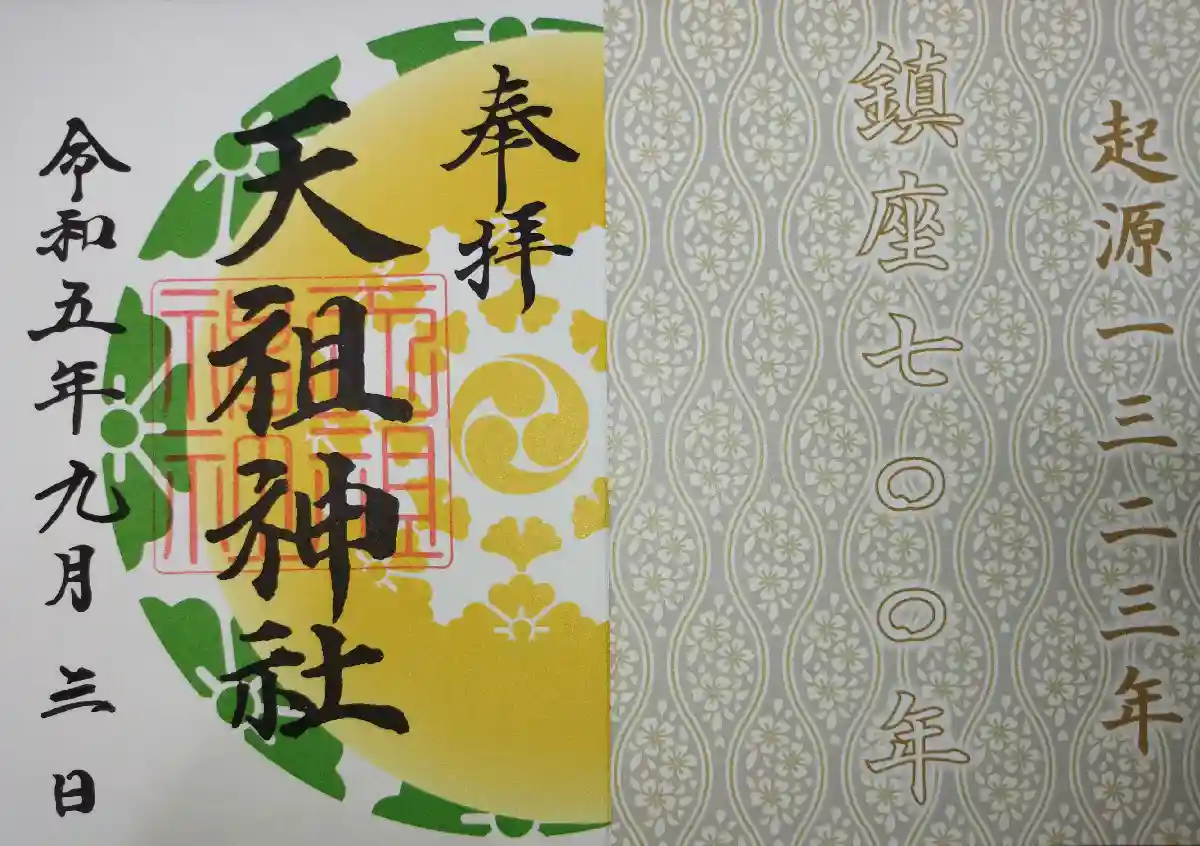 起源一三二三年
鎮座七〇〇年
奉拝
天祖神社
令和五年九月三日